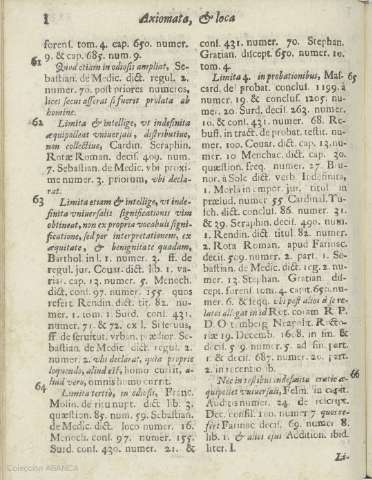 I Axiomata, & loca
forens. tom. 4. cap. 650. numer.
9. & cap. 685. num. 9.
61 Quod etiam in odiosis ampliat, Se-
bastian. de Medic. dict. regul. 2.
numer. 70. post priores numeros,
licet secus asserat si fuerit prolata ab
homine.
62 Limita & intellige, ut indefinita
æquipolleat vniuersali, distributiue,
non collectiue, Cardin. Seraphin.
Rotæ Roman. decis. 409. num.
7. Sebastian. de Medic. vbi proxi-
me numer. 3. priorum, vbi decla-
rat.
63 Limita etiam & intellige, vt inde-
finita vniuersalis significationis vim
obtineat, non ex propria vocabuli signi-
ficatione, sed per interpretationem, ex
æquitate, & benignitate quadam,
Barthol. in l. 1. numer. 3. ff. de
regul. jur. Couar. dict. lib. 1. va-
riar. cap. 13. numer. 5. Menoch.
dict. cons. 97. numer. 157. quos
refert Rendin. dict. tit. 82. nu-
mer. 1. tom. 1. Surd. cons. 431.
numer. 71. & 72. ex l. Si seruus,
ff. de seruitut. vrban. prædior. Se-
bastian. de Medic. dict. regul. 2.
numer. 2. vbi declarat, quia proprie
loquendo, aliud est, homo currit, a-
liud vero, omnis homo currit.
64 Limita tertio, in odiosis, Franc.
Molin. de rit. nupt. dict. lib. 3.
quæstion. 85. num. 59. Sebastian.
de Medic. dict. loco numer. 16.
Menoch. cons. 97. numer. 155.
Surd. cons. 430. numer. 21. &
cons. 431. numer. 70. Stephan.
Gratian. discept. 650. numer. 10.
tom. 4.
65 Limita 4. in probationibus, Mas-
card. de probat. conclus. 1199. à
numer. 19. & conclus. 1205. nu-
mer. 20. Surd. decis. 263. numer.
10. & cons. 431. numer. 68. Re-
buff. in tract. de probat. testit. nu-
mer. 100. Couar. dict. cap. 13. nu-
mer. 10 Menchac. dict. cap. 30.
quæstion. freq. numer. 27. Bu-
nor. a Sole dict. verb. Indefinita,
1. Morla in empor. jur. titul. in
prælud. numer 55 Cardinal. Tu-
sch. dict. conclus. 86. numer. 31.
& 39. Seraphin. decis. 490. num.
1. Rendin. dict. titul 82. numer.
2. Rota Roman. apud Farinac.
decis. 509. numer. 2. part. 1. Se-
bastian. de Medic. dict. reg. 2. nu-
mer. 13. Stephan. Gratian. dis-
cep. forens. tom. 4. cap. 650. nu-
mer. 6. & seqq. vbi post alios à se re-
latos allegat in id Rot. coram R. P.
1. & decis. 687. numer. 20. part.
2. in recentiorib.
66 Nec in testibus indefinita oratio æ-
quipollet vniuersali, Felin. in capit.
Dec. consil. 180. numer 7. quos re-
fert Farinac decis. 69. numer 8.
lib. 1. & alios ejus Addition. ibid.
liter. I.
Li-
Colección ABANCA